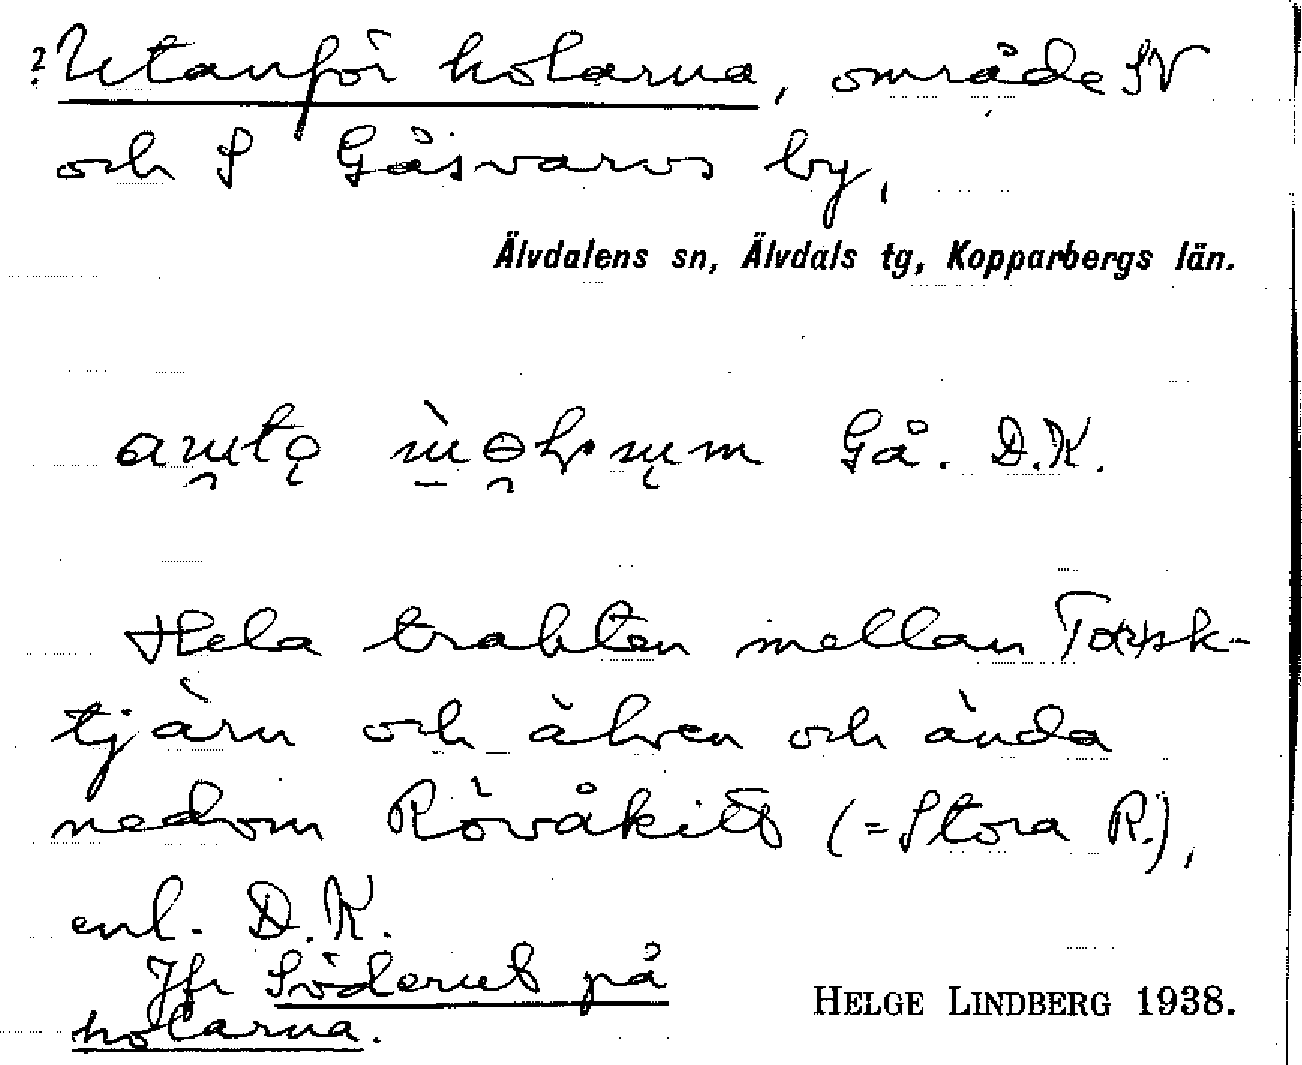 ? Utanför holarna, område SV
och S Gåsvarvs by,
Älvdalens sn, Älvdals tg, Kopparbergs län.
Gå. D.K.
Hela trakten mellan Torsk-
tjärn och älven och ända
nedom Rövåkitt (= Stora R.),
enl. D.K.
Jfr Söderut på
holarna.
HELGE LINDBERG 1938.